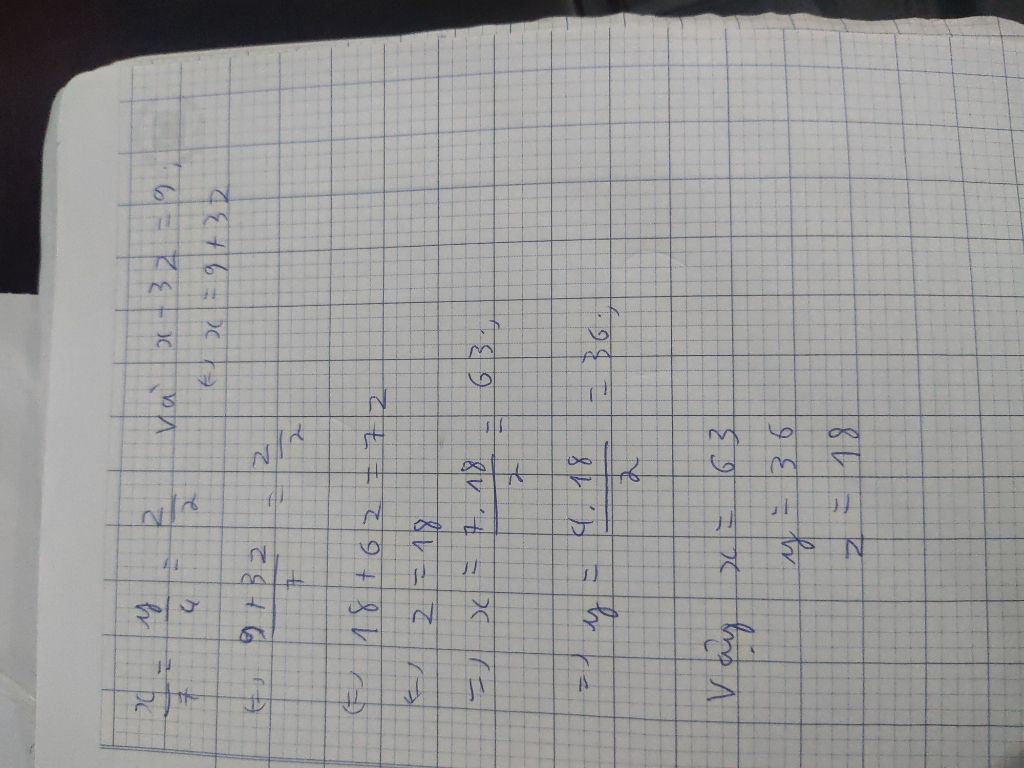 x/7 = y/4 = z/2 và x - 3z = 9;
(=) x = 9 + 3z
(=) (9 + 3z)/7 = z/2
(=) 18 + 6z = 7z
(=) z = 18
=) x = (7.18)/2 = 63;
=) y = (4.18)/2 = 36;
Vậy x = 63
y = 36
z = 18